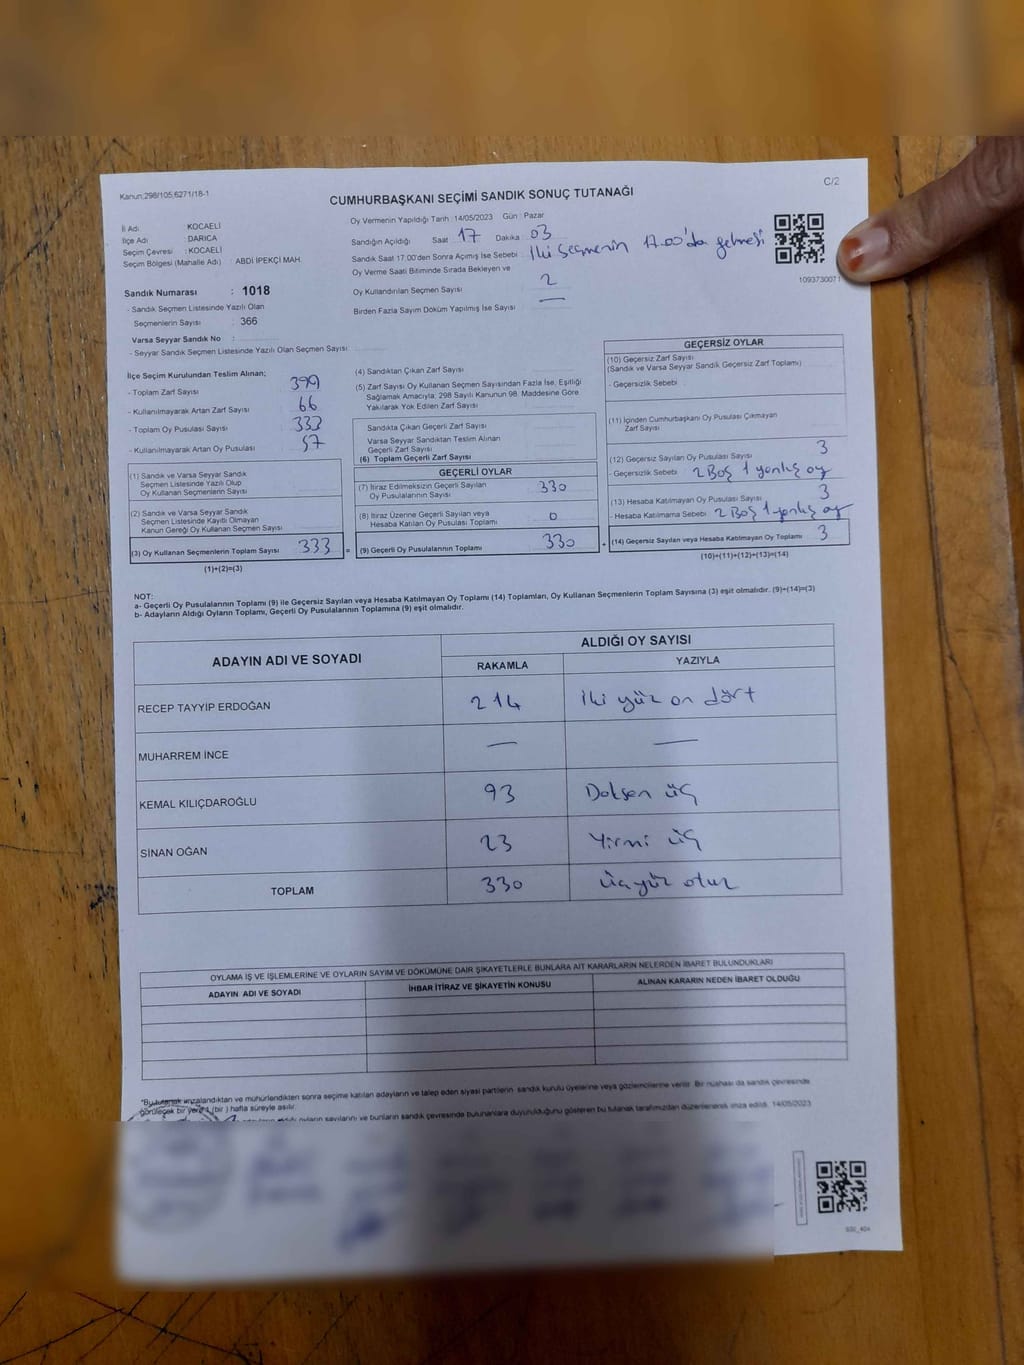 Kanun:298/105,6271/18-1
C/2
CUMHURBAŞKANI SEÇİMİ SANDIK SONUÇ TUTANAĞI
İl Adı : KOCAELİ
İlçe Adı : DARICA
Seçim Çevresi : KOCAELİ
Seçim Bölgesi (Mahalle Adı) : ABDİ İPEKÇİ MAH.
Oy Vermenin Yapıldığı Tarih :14/05/2023 Gün : Pazar
Sandığın Açıldığı Saat 17 Dakika 03
Sandık Saat 17.00'den Sonra Açılmış İse Sebebi : İki seçmenin 17.00'da gelmesi
Oy Verme Saati Bitiminde Sırada Bekleyen ve
Oy Kullandırılan Seçmen Sayısı 2
Birden Fazla Sayım Döküm Yapılmış İse Sayısı : —
1093730071
Sandık Numarası : 1018
- Sandık Seçmen Listesinde Yazılı Olan
Seçmenlerin Sayısı : 366
Varsa Seyyar Sandık No :
- Seyyar Sandık Seçmen Listesinde Yazılı Olan Seçmen Sayısı:
İlçe Seçim Kurulundan Teslim Alınan;
- Toplam Zarf Sayısı 399
- Kullanılmayarak Artan Zarf Sayısı 66
- Toplam Oy Pusulası Sayısı 333
- Kullanılmayarak Artan Oy Pusulası 57
(1) Sandık ve Varsa Seyyar Sandık
Seçmen Listesinde Yazılı Olup
Oy Kullanan Seçmenlerin Sayısı
(2) Sandık ve Varsa Seyyar Sandık
Seçmen Listesinde Kayıtlı Olmayan
Kanun Gereği Oy Kullanan Seçmen Sayısı
(3) Oy Kullanan Seçmenlerin Toplam Sayısı 333 =
(1)+(2)=(3)
(4) Sandıktan Çıkan Zarf Sayısı
(5) Zarf Sayısı Oy Kullanan Seçmen Sayısından Fazla İse, Eşitliği
Sağlamak Amacıyla; 298 Sayılı Kanunun 98. Maddesine Göre
Yakılarak Yok Edilen Zarf Sayısı
Sandıkta Çıkan Geçerli Zarf Sayısı
Varsa Seyyar Sandıktan Teslim Alınan
Geçerli Zarf Sayısı
(6) Toplam Geçerli Zarf Sayısı
GEÇERLİ OYLAR
(7) İtiraz Edilmeksizin Geçerli Sayılan
Oy Pusulalarının Sayısı 330
(8) İtiraz Üzerine Geçerli Sayılan veya
Hesaba Katılan Oy Pusulası Toplamı 0
(9) Geçerli Oy Pusulalarının Toplamı 330 +
GEÇERSİZ OYLAR
(10) Geçersiz Zarf Sayısı
(Sandık ve Varsa Seyyar Sandık Geçersiz Zarf Toplamı)
- Geçersizlik Sebebi
(11) İçinden Cumhurbaşkanı Oy Pusulası Çıkmayan
Zarf Sayısı
(12) Geçersiz Sayılan Oy Pusulası Sayısı 3
- Geçersizlik Sebebi 2 Boş 1 yanlış oy
(13) Hesaba Katılmayan Oy Pusulası Sayısı 3
- Hesaba Katılmama Sebebi 2 Boş 1 yanlış oy
(14) Geçersiz Sayılan veya Hesaba Katılmayan Oy Toplamı 3
(10)+(11)+(12)+(13)=(14)
NOT:
a- Geçerli Oy Pusulalarının Toplamı (9) ile Geçersiz Sayılan veya Hesaba Katılmayan Oy Toplamı (14) Toplamları, Oy Kullanan Seçmenlerin Toplam Sayısına (3) eşit olmalıdır. (9)+(14)=(3)
b- Adayların Aldığı Oyların Toplamı, Geçerli Oy Pusulalarının Toplamına (9) eşit olmalıdır.
ADAYIN ADI VE SOYADI
ALDIĞI OY SAYISI
RAKAMLA YAZIYLA
RECEP TAYYİP ERDOĞAN 214 iki yüz on dört
MUHARREM İNCE — —
KEMAL KILIÇDAROĞLU 93 Doksen üç
SİNAN OĞAN 23 Yirmi üç
TOPLAM 330 üçyüz otuz
OYLAMA İŞ VE İŞLEMLERİNE VE OYLARIN SAYIM VE DÖKÜMÜNE DAİR ŞİKAYETLERLE BUNLARA AİT KARARLARIN NELERDEN İBARET BULUNDUKLARI
ADAYIN ADI VE SOYADI İHBAR İTİRAZ VE ŞİKAYETİN KONUSU ALINAN KARARIN NEDEN İBARET OLDUĞU
*Bu tutanak imzalandıktan ve mühürlendikten sonra seçime katılan adayların ve talep eden siyasi partilerin sandık kurulu üyelerine veya gözlemcilerine verilir. Bir nüshası da sandık çevresinde
görülecek bir yere 1 (bir ) hafta süreyle asılır.
oyların sayılarını ve bunların sandık çevresinde bulunanlara duyurulduğunu gösteren bu tutanak tarafımızdan düzenlenerek imza edildi. 14/05/2023